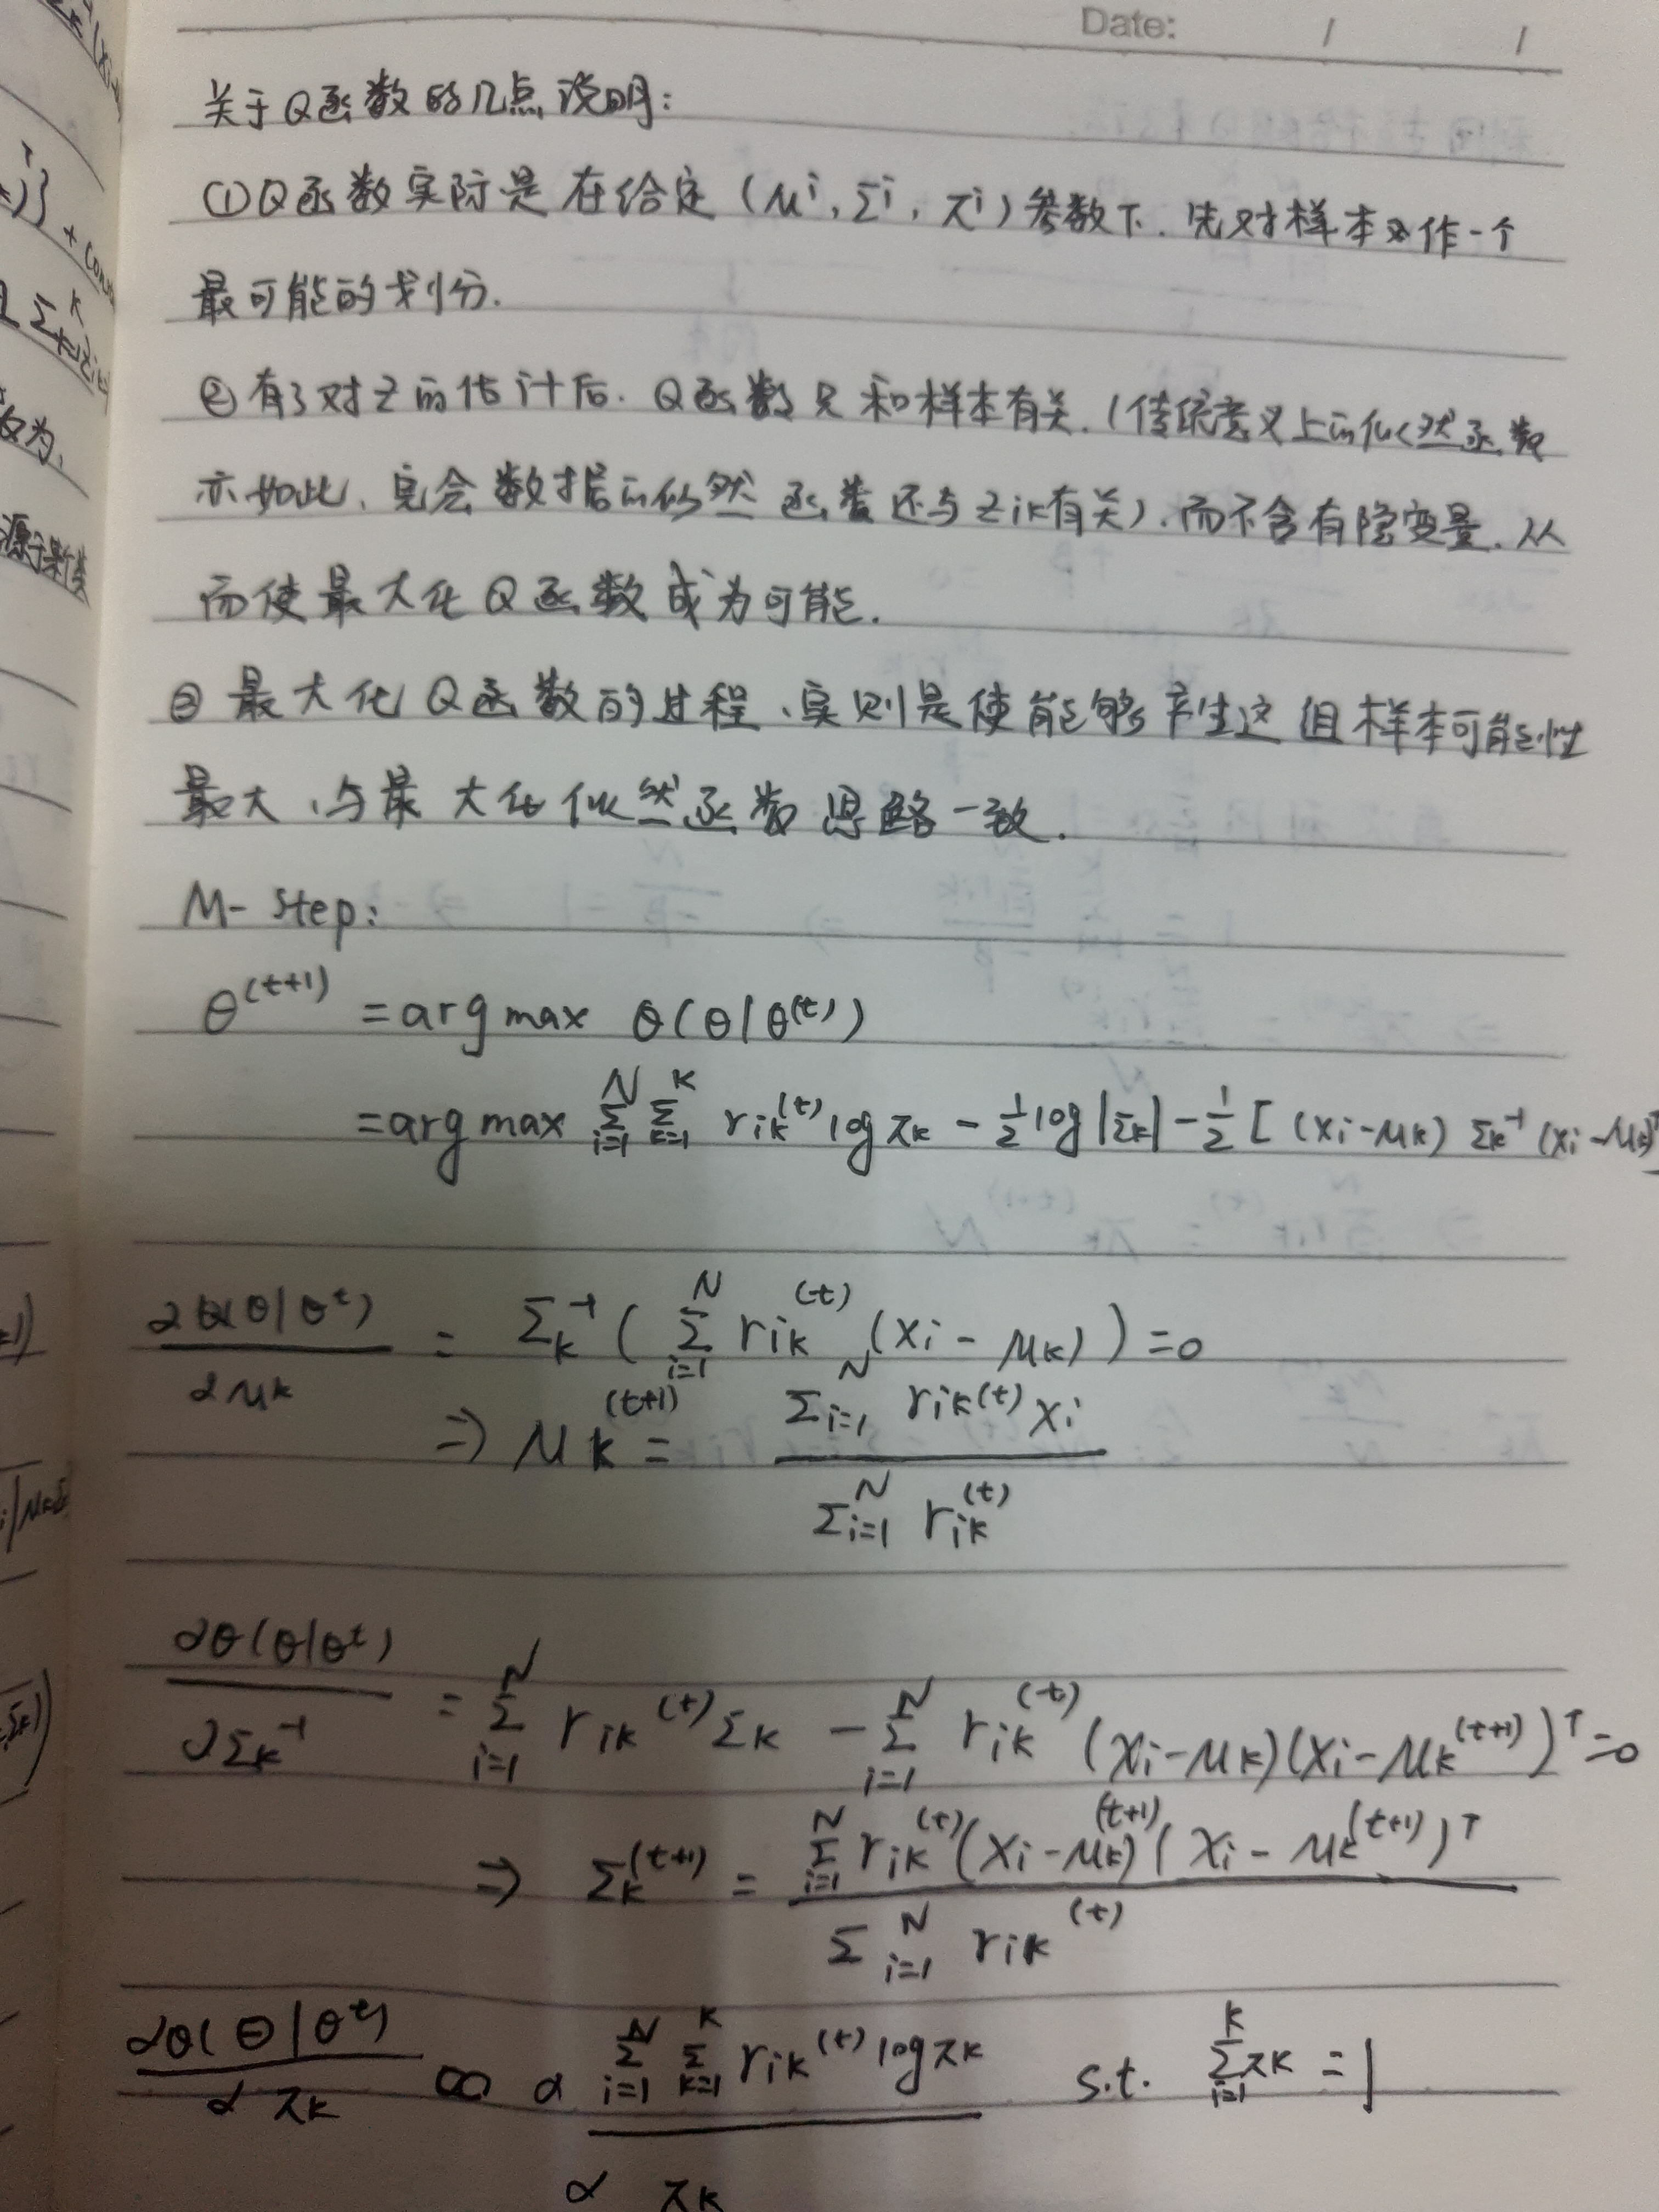 Date: / /
关于Q函数的几点说明:
①Q函数实际是在给定(μ^i, Σ^i, π^i)参数下. 先对样本作一个
最可能的划分.
②有了对Z的估计后. Q函数只和样本有关. (传统意义上的似然函数
亦如此, 完全数据的似然函数还与Zik有关). 而不含有隐变量. 从
而使最大化Q函数成为可能.
③最大化Q函数的过程、实则是使能够产生这组样本可能性
最大、与最大化似然函数思路一致.
M- Step:
θ^(t+1) = arg max θ(θ|θ^(t))
= arg max Σ_{i=1}^N Σ_{k=1}^K r_ik^(t) log π_k - 1/2 log|Σ_k| - 1/2 [ (x_i-μ_k) Σ_k^-1 (x_i-μ_k)^T
∂Q(θ|θ^t) / ∂μ_k = Σ_k^-1 ( Σ_{i=1}^N r_ik^(t) (x_i - μ_k) ) = 0
⇒ μ_k^(t+1) = Σ_{i=1}^N r_ik^(t) x_i / Σ_{i=1}^N r_ik^(t)
∂θ(θ|θ^t) / ∂Σ_k^-1 = Σ_{i=1}^N r_ik^(t) Σ_k - Σ_{i=1}^N r_ik^(t) (x_i-μ_k)(x_i-μ_k^(t+1))^T = 0
⇒ Σ_k^(t+1) = Σ_{i=1}^N r_ik^(t) (x_i-μ_k^(t+1)) (x_i-μ_k^(t+1))^T / Σ_{i=1}^N r_ik^(t)
∂θ(θ|θ^t) / ∂π_k ∞ ∂ Σ_{i=1}^N Σ_{k=1}^K r_ik^(t) log π_k / ∂ π_k s.t. Σ_{i=1}^K π_k = 1